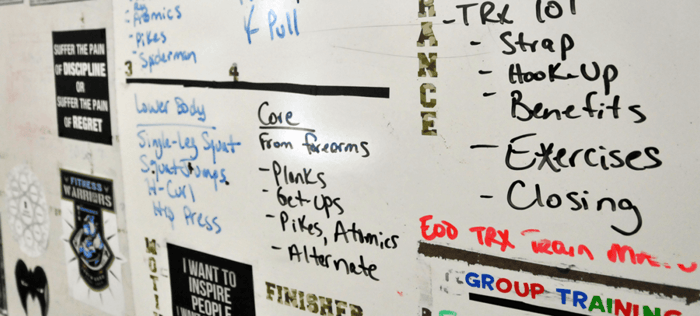 SUFFER THE PAIN
OF DISCIPLINE
OR
SUFFER THE PAIN
OF REGRET
FITNESS
WARRIORS
Atomics
- Pikes
- Spiderman
Pull
3
4
Lower Body
Single-Leg Squat
Squat Jumps
H-Curl
Hip Press
Core
From forearms
- Planks
- Get-Ups
- Pikes, Atomics
- Alternate
I WANT TO
INSPIRE
PEOPLE
FINISHER
ANCE
- TRX 101
- Strap
- Hook-Up
- Benefits
- Exercises
- Closing
TRX Train
GROUP TRAINING